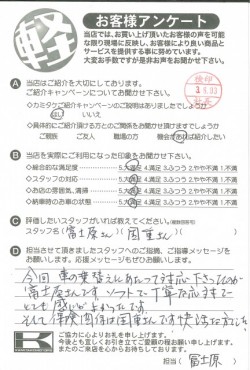 軽
お客様アンケート
当店では、お買い上げ頂いたお客様の声を可能
な限り現場に反映し、お客様により良い商品と
サービスを提供する事に努めています。
大変お手数ですが是非お声をお聞かせ下さい。
A 当店はご紹介を大切にしております。
ご紹介キャンペーンについてお聞かせ下さい。
検印
◇カミタケご紹介キャンペーンのご説明はありましたでしょうか
はい いいえ
◇具体的にご紹介頂ける方とのご関係をお聞かせ頂けますでしょうか
ご親族 ご友人 職場の方 機会があれば紹介したい
B 当店を実際にご利用になった印象をお聞かせ下さい。
◇総合的な満足度 5.大満足 4.満足 3.ふつう 2.やや不満 1.不満
◇スタッフの対応 5.大満足 4.満足 3.ふつう 2.やや不満 1.不満
◇お店の雰囲気、清掃 5.大満足 4.満足 3.ふつう 2.やや不満 1.不満
◇納車時のお車の状態 5.大満足 4.満足 3.ふつう 2.やや不満 1.不満
C 評価したいスタッフがいれば教えてください。(複数回答可)
スタッフ名(富士原さん)(国重さん)
D 担当させて頂きましたスタッフへのご指摘、ご指導メッセージを
お願いします。応援メッセージもぜひお願いします。
今回 車の乗替えにあたって対応下さったのが
富士原さんです ソフトで丁寧な応対で
とても感じがよかったです。
そして保険関係は国重さんです
ご協力に心よりお礼を申し上げます。
今後とも宜しくお引き立てご愛顧の程お願い申し上げます。
またのご来店を心からお待ちしております。
担当(富士原)